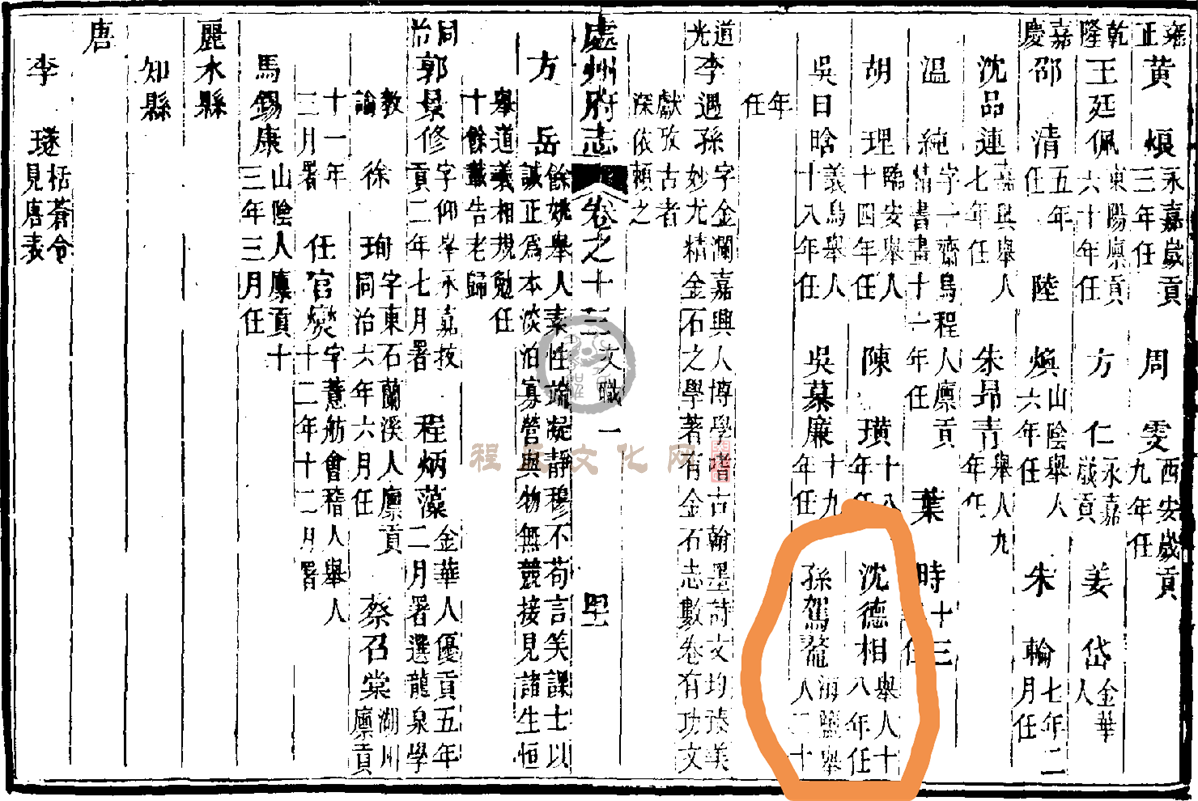 雍正 黄煅 永嘉歲貢三年任 周雯 西安歲貢九年任
乾隆 王廷佩 東陽廪貢六十年任 方仁 永嘉歲貢 姜岱 金華人
嘉慶 邵清 五年任 陸煥 山陰舉人六年任 朱輪 七年二月任
沈品連 嘉興舉人七年任 朱昻青 舉人九年任
温純 字一齋烏程人廪貢情書畫十一年任 葉時 十三任
胡理 臨安舉人十四年任 陳璜 十八年任 沈德相 舉人十八年任
吳日晗 義烏舉人十八年任 吳慕廉 十九年任 孫駕鰲 海鹽舉人二十
年任
道光 李遇孫 字金瀾嘉興人博學嗜古翰墨詩文均臻美妙尤精金石之學著有金石志數卷有功文
獻攷古者深依頼之
處州府志 卷之十三 文職一
方岳 餘姚舉人素性端凝靜穆不苟言笑課士以誠正爲本淡泊寡營與物無競接見諸生恒
舉道義相規勉任十餘載告老歸
同治 郭景修 字仰峯永嘉拔貢二年七月署 程炳藻 金華人優貢五年二月署選龍泉學
教諭 徐珣 字東石蘭溪人廪貢同治六年六月任 蔡召棠 湖州廪貢
十一年三月署 任官爕 字薏舫會稽人舉人十二年十二月署
馬錫康 山陰人廪貢十三年三月任
麗水縣
知縣
唐
李璲 栝蒼令見唐表
程氏文化网